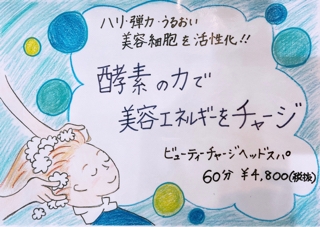 ハリ・弾力・うるおい
美容細胞を活性化!!
酵素の力で
美容エネルギーをチャージ
ビューティーチャージヘッドスパ
60分 ¥4,800(税抜)